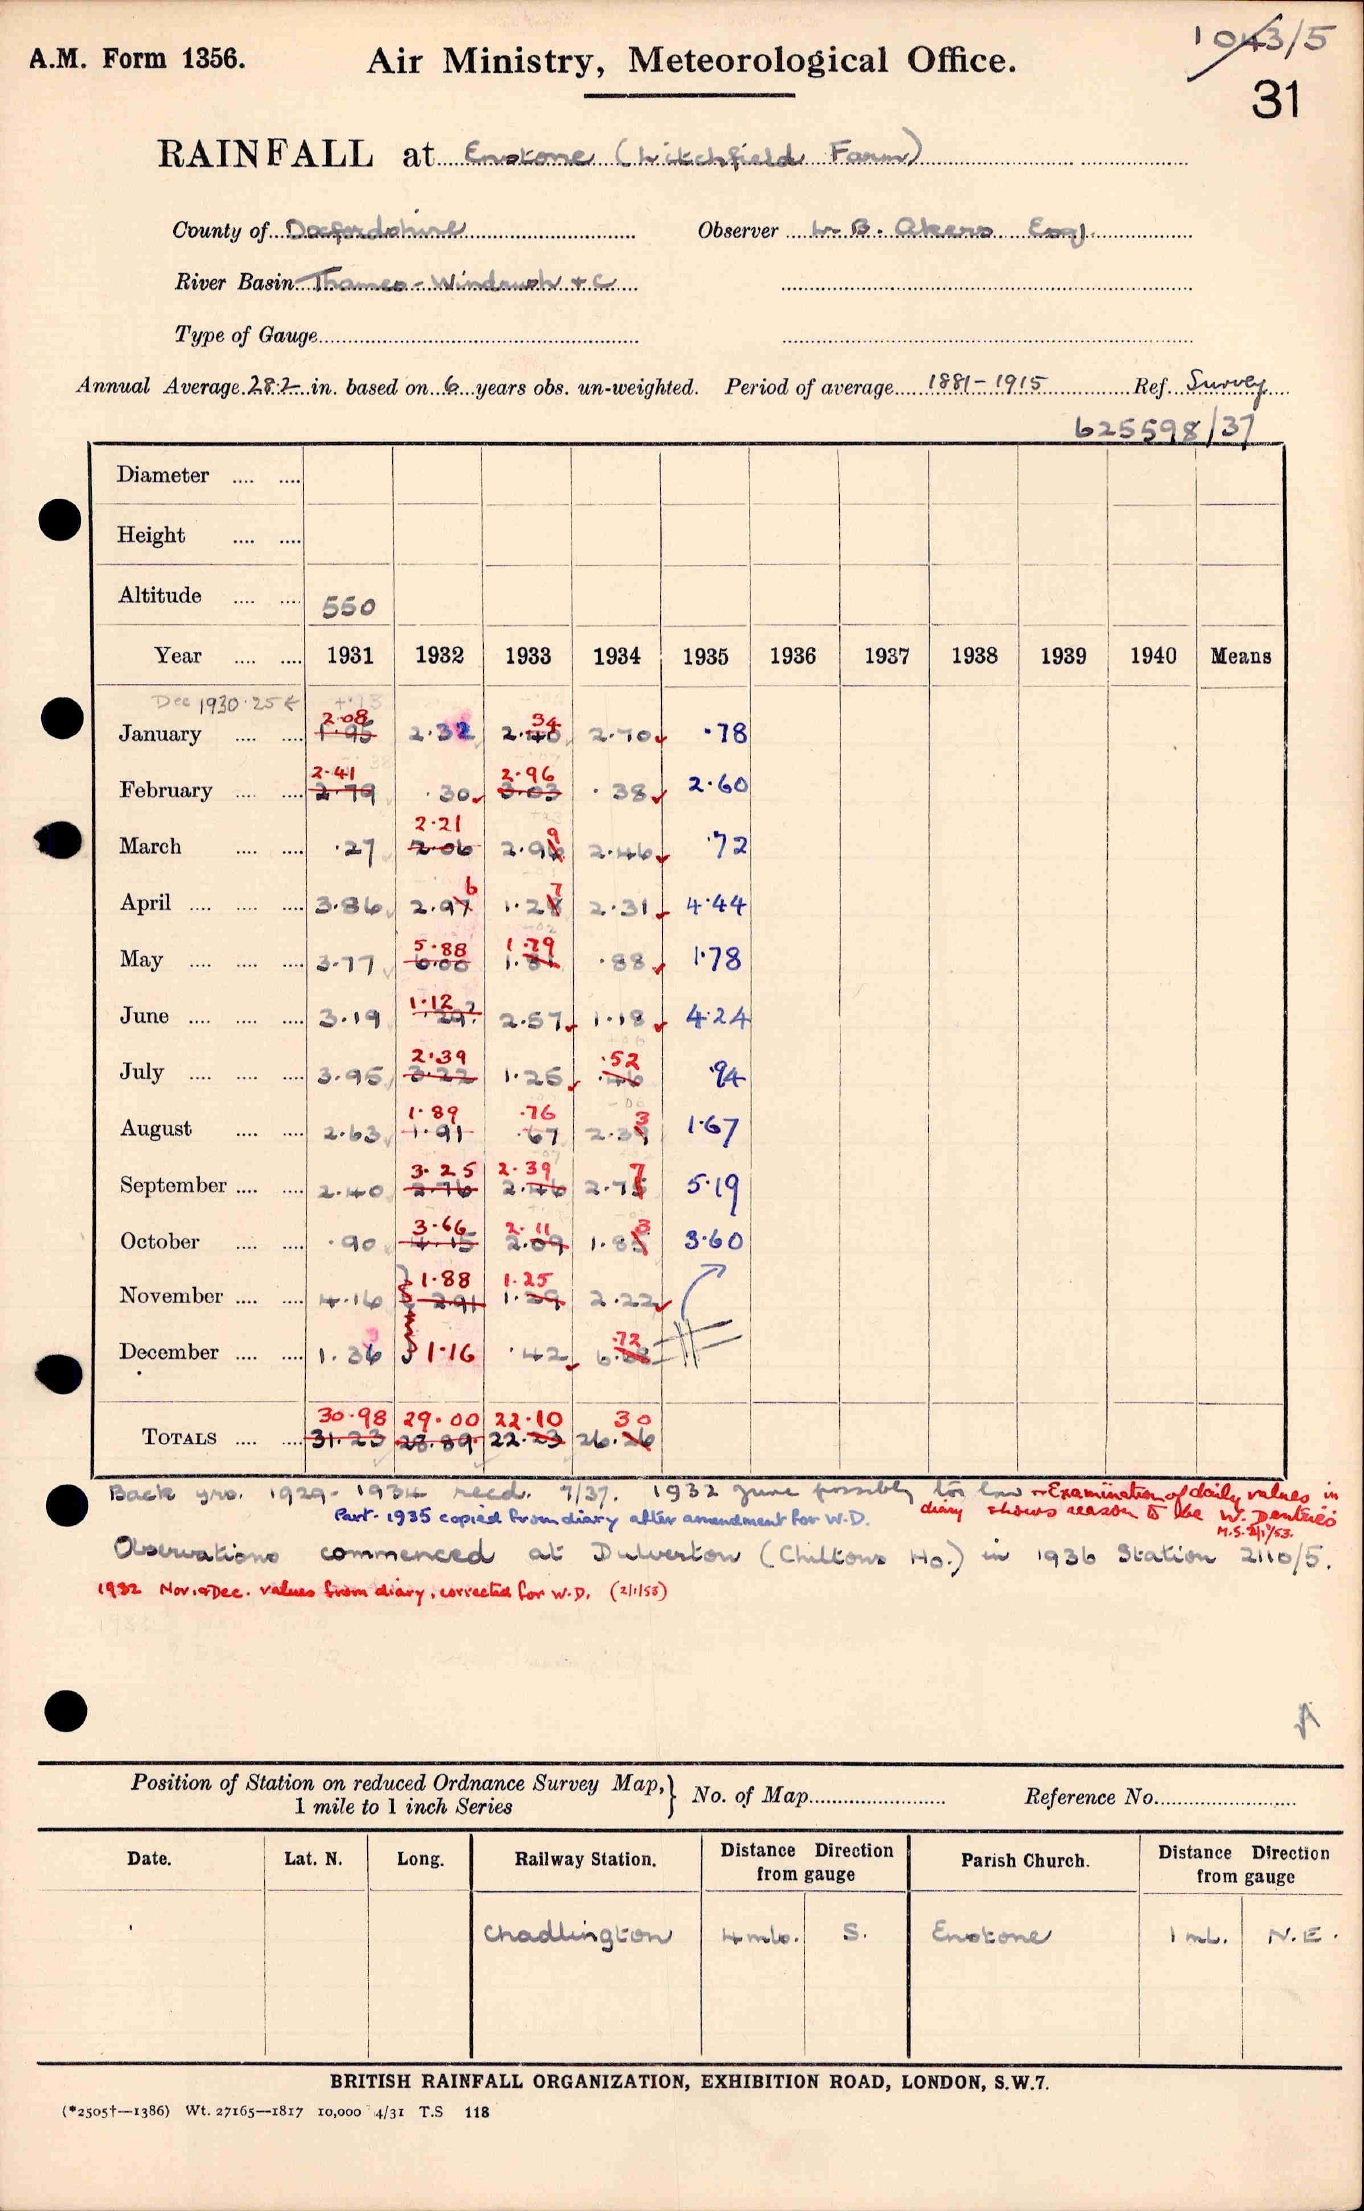 1043/5
A.M. Form 1356. Air Ministry, Meteorological Office.
31
RAINFALL at Enstone (Litchfield Farm)
County of Oxfordshire Observer W. B. Akers Esq.
River Basin Thames - Windrush & C
Type of Gauge
Annual Average 28.2 in. based on 6 years obs. un-weighted. Period of average 1881-1915 Ref. Survey
625598/37
Diameter .... ....
Height .... ....
Altitude .... .... 550
Year .... .... 1931 1932 1933 1934 1935 1936 1937 1938 1939 1940 Means
Dec 1930 .25
2.08 34
January .... .... 1.95 2.32 2.40 2.70 .78
2.41 2.96
February .... .... 2.79 .30 3.03 .38 2.60
2.21 9
March .... .... .27 2.06 2.96 2.46 .72
6 7
April .... .... .... 3.86 2.97 1.28 2.31 4.44
5.88 1.79
May .... .... .... 3.77 6.00 1.81 .88 1.78
1.12
June .... .... .... 3.19 .29? 2.57 1.18 4.24
2.39 .52
July .... .... .... 3.95 3.22 1.25 .46 .94
1.89 .76 3
August .... .... 2.63 1.91 .67 2.39 1.67
3.25 2.39 7
September .... .... 2.40 2.76 2.46 2.75 5.19
3.66 2.11 3
October .... .... .90 4.15 2.09 1.85 3.60
1.88 1.25
November .... .... 4.16 2.91 1.29 2.22
3 .72
December .... .... 1.36 1.16 .42 6.68
30.98 29.00 22.10 30
TOTALS .... .... 31.23 28.89 22.23 26.26
Back yrs. 1929-1934 recd. 7/37. 1932 June possibly too low - Examination of daily values in
diary shows reason to be W. Denteries
Part. 1935 copied from diary after amendment for W.D.
M.S. 2/1/53.
Observations commenced at Dulverton (Chiltons Ho.) in 1936 Station 2110/5.
1932 Nov. & Dec. values from diary, corrected for W.D. (2/1/53)
Position of Station on reduced Ordnance Survey Map,
1 mile to 1 inch Series } No. of Map Reference No.
Date. Lat. N. Long. Railway Station. Distance Direction from gauge Parish Church. Distance Direction from gauge
Chadlington 4 mls. S. Enstone 1 ml. N.E.
BRITISH RAINFALL ORGANIZATION, EXHIBITION ROAD, LONDON, S.W.7.
(*2505†—1386) Wt. 27165—1817 10,000 4/31 T.S 118